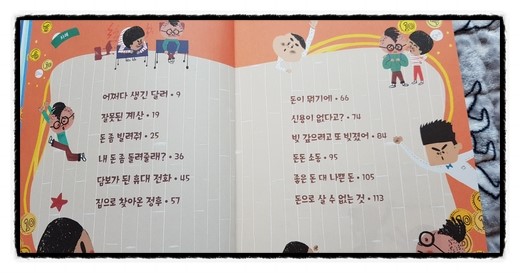 차례
어쩌다 생긴 달러 • 9
잘못된 계산 • 19
돈 좀 빌려줘 • 25
내 돈 좀 돌려줄래? • 36
담보가 된 휴대 전화 • 45
집으로 찾아온 정후 • 57
돈이 뭐기에 • 66
신용이 없다고? • 74
빚 갚으려고 또 빚졌어 • 84
돈돈 소동 • 95
좋은 돈 대 나쁜 돈 • 105
돈으로 살 수 없는 것 • 113